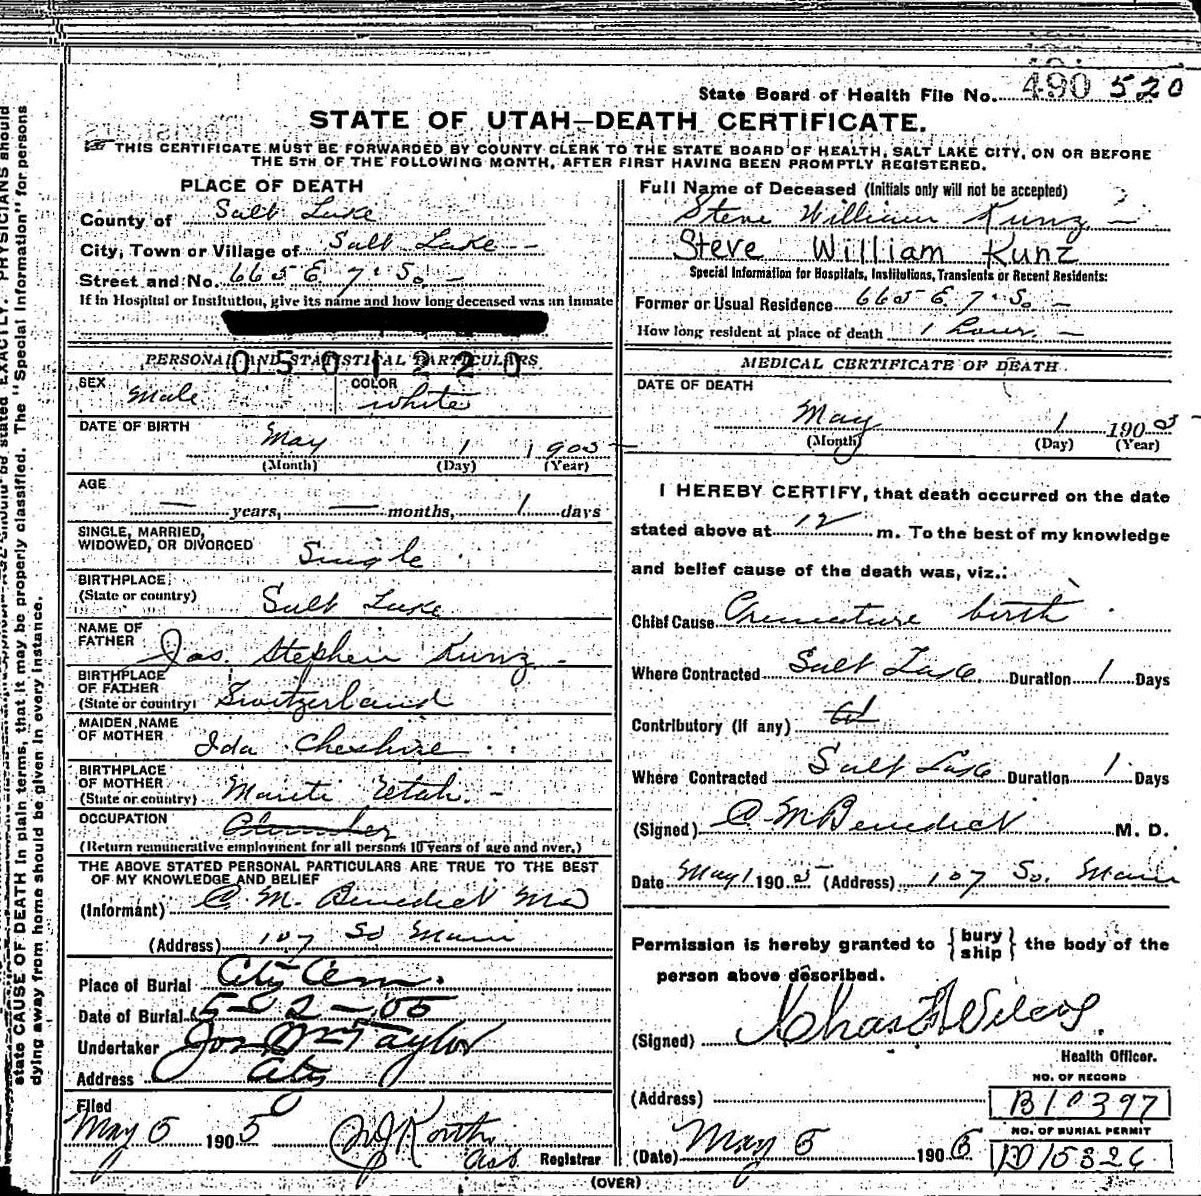 State Board of Health File No. 490 520
STATE OF UTAH—DEATH CERTIFICATE.
THIS CERTIFICATE MUST BE FORWARDED BY COUNTY CLERK TO THE STATE BOARD OF HEALTH, SALT LAKE CITY, ON OR BEFORE
THE 5TH OF THE FOLLOWING MONTH, AFTER FIRST HAVING BEEN PROMPTLY REGISTERED.
PLACE OF DEATH
County of Salt Lake
City, Town or Village of Salt Lake
Street and No. 665 E 7 So.
If in Hospital or Institution, give its name and how long deceased was an inmate
PERSONAL AND STATISTICAL PARTICULARS
0501220
SEX Male COLOR white
DATE OF BIRTH
May 1 1905
(Month) (Day) (Year)
AGE
— years, — months, 1 days
SINGLE, MARRIED,
WIDOWED, OR DIVORCED Single
BIRTHPLACE
(State or country) Salt Lake
NAME OF
FATHER Jos. Stephen Kunz
BIRTHPLACE
OF FATHER
(State or country) Switzerland
MAIDEN NAME
OF MOTHER Ida Cheshire
BIRTHPLACE
OF MOTHER
(State or country) Manti Utah.
OCCUPATION
(Return remunerative employment for all persons 10 years of age and over.)
THE ABOVE STATED PERSONAL PARTICULARS ARE TRUE TO THE BEST
OF MY KNOWLEDGE AND BELIEF
(Informant) C. M. Benedict MD
(Address) 107 So Main
Place of Burial City Cem.
Date of Burial 5-2-05
Undertaker Jos Wm Taylor
Address City
Filed
May 5 1905
Ass Registrar
Full Name of Deceased (Initials only will not be accepted)
Steve William Kunz
Steve William Kunz
Special Information for Hospitals, Institutions, Transients or Recent Residents:
Former or Usual Residence 665 E. 7 So
How long resident at place of death 1 hour
MEDICAL CERTIFICATE OF DEATH
DATE OF DEATH
May 1 1905
(Month) (Day) (Year)
I HEREBY CERTIFY, that death occurred on the date
stated above at 12 m. To the best of my knowledge
and belief cause of the death was, viz.:
Chief Cause Premature birth
Where Contracted Salt Lake Duration 1 Days
Contributory (if any)
Where Contracted Salt Lake Duration 1 Days
(Signed) C. M Benedict M. D.
Date May 1 1905 (Address) 107 So. Main
Permission is hereby granted to {bury
ship} the body of the
person above described.
(Signed) Chas F Wilcox
Health Officer.
NO. OF RECORD
(Address) B10397
NO. OF BURIAL PERMIT
(Date) May 5 1905
(OVER)
state CAUSE OF DEATH in plain terms, that it may be properly classified. The "Special Information" for persons
dying away from home should be given in every instance.
stated EXACTLY. PHYSICIANS should